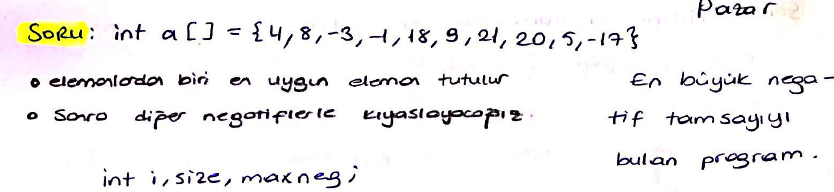 Pazar
SORU: int a[] = {4,8,-3,-1,18,9,21,20,5,-17}
• elemanlardan biri en uygun eleman tutulur
• Sonra diğer negatiflerle kıyaslayacağız.
En büyük nega-
tif tamsayıyı
bulan program.
int i, size, maxneg;